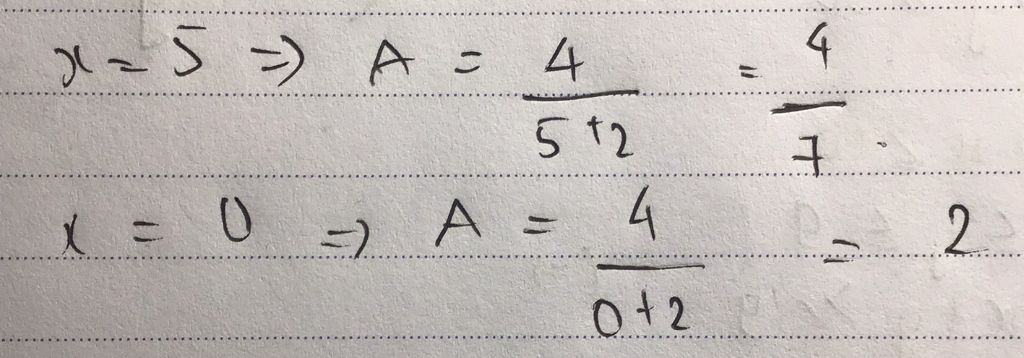 x = 5 => A = 4/(5+2) = 4/7.
x = 0 => A = 4/(0+2) = 2